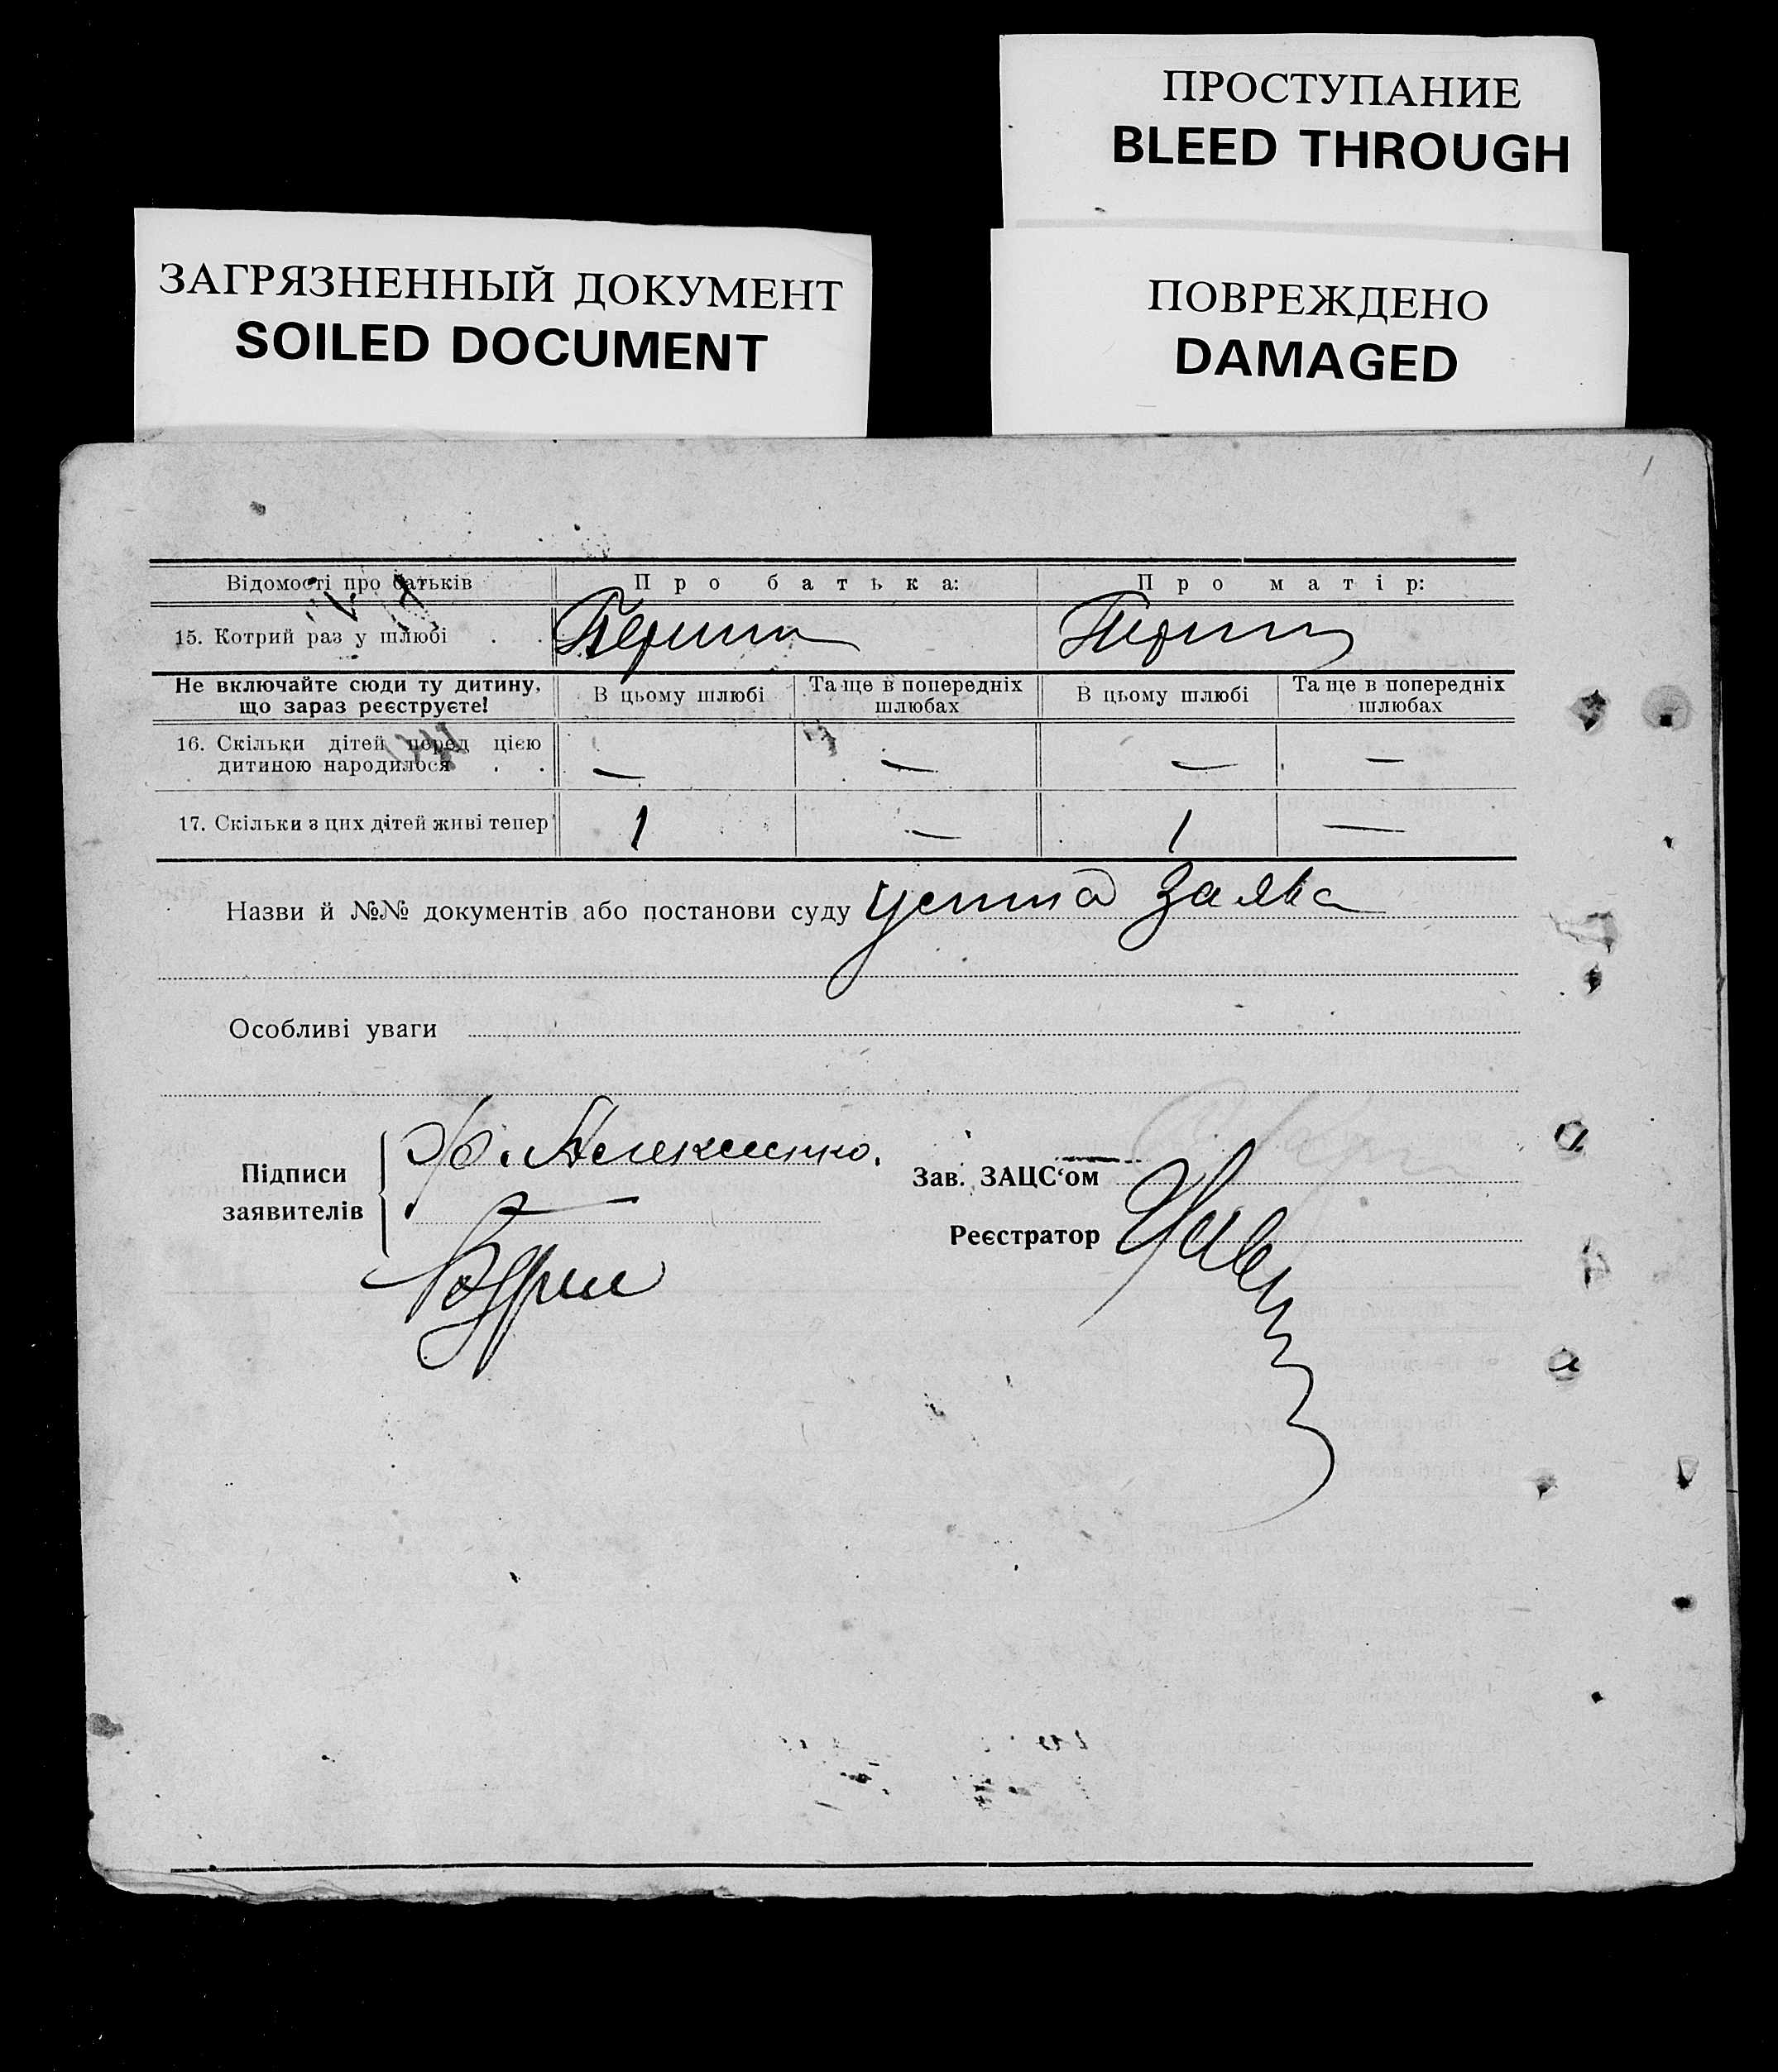 ПРОСТУПАНИЕ
BLEED THROUGH
ЗАГРЯЗНЕННЫЙ ДОКУМЕНТ
SOILED DOCUMENT
ПОВРЕЖДЕНО
DAMAGED
Відомості про батьків Про батька: Про матір:
15. Котрий раз у шлюбі . . Перший Перший
Не включайте сюди ту дитину, що зараз реєструєте! В цьому шлюбі Та ще в попередніх шлюбах В цьому шлюбі Та ще в попередніх шлюбах
16. Скільки дітей перед цією
дитиною народилося . . — — — —
17. Скільки з цих дітей живі тепер 1 — 1 —
Назви й №№ документів або постанови суду Устна Заява
Особливі уваги
Підписи
заявителів
Зав. ЗАЦС‘ом
Реєстратор